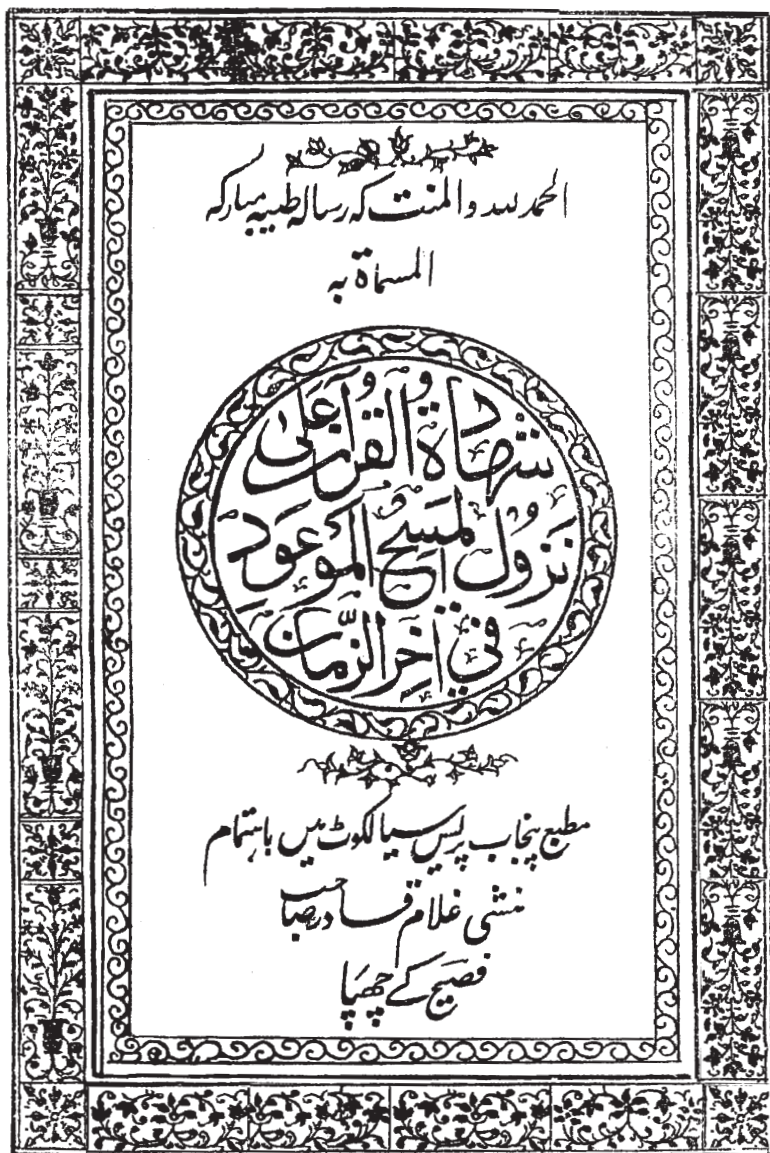 الحمد للہ والمنت کہ رسالہ طیبہ مبارکہ
المسماۃ بہ
شَهَادةُ القُرآن عَلٰى
نزُولِ المَسِيحِ المَوعُودِ
فِي آخِرِ الزَّمَان
مطبع پنجاب پریس سیالکوٹ میں باہتمام
منشی غلام قادر صاحب
فصیح کے چھپا